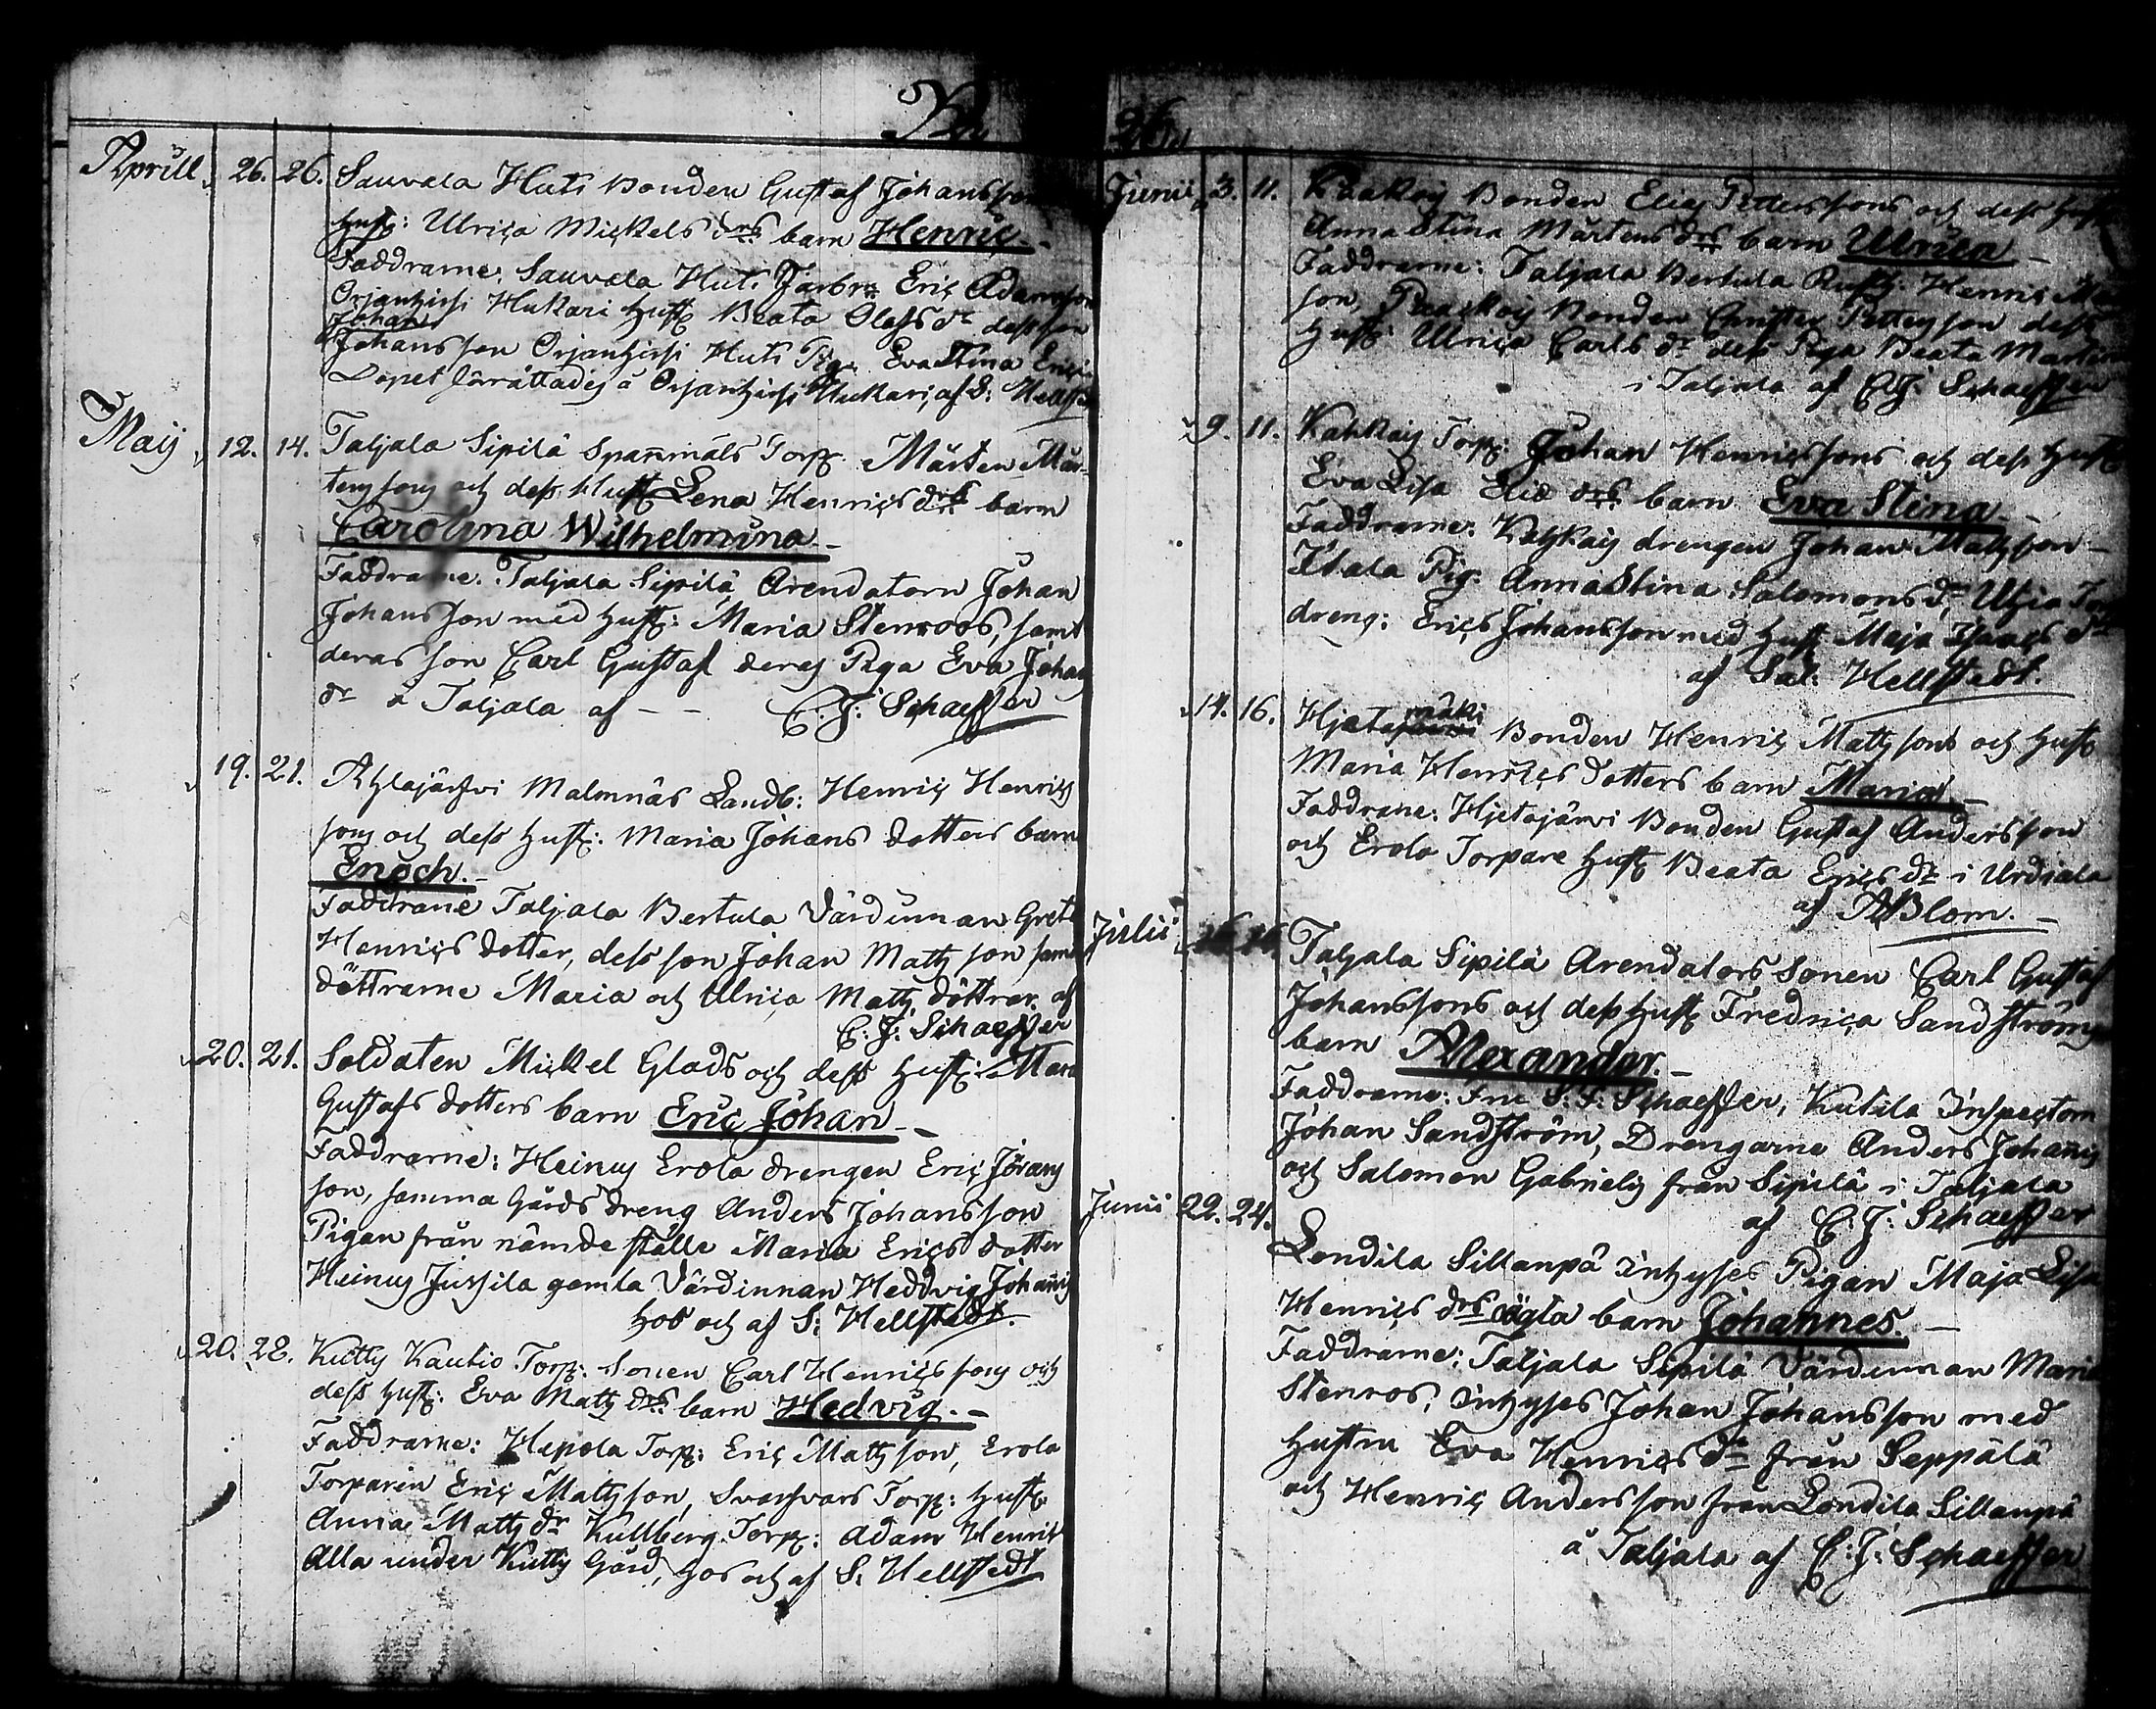 26.
Aprill 26. 26. Sauvala Huti Bonden Gustaf Johansson
Hust: Ulrica Mickels drs barn Henric
Faddrarne: Sauvala Huti Eric Adamsson
Orjanhirsi Hukari Hust: Beata Olofs dr dess son
Johan
Johansson Orjanhirsi Huti Pig. Eva Stina Erics
Dopet förrättades å Orjanhirsi Hukari, af S: Hellst
Maij 12. 14. Taljala Sipilä Spanmåls Torp. Mårten Mår-
tenssons och dess Hust Lena Henrics drs barn
Carolina Wilhelmina
Faddrarne: Taljala Sipilä Arendatorn Johan
Johansson med Hust: Maria Stenroos, samt
deras son Carl Gustaf deras Piga Eva Johans
dr å Taljala af - - C. J: Schaeffer
19. 21. Malmnäs Landb: Henric Henrics
sons och dess Hust: Maria Johans dotters barn
Enoch.
Faddrarne Taljala Bertula Värdinnan Greta
Henrics dotter, dess son Johan Mattsson samt
döttrarne Maria och Ulrica Matts döttrar. af
C: J: Schaeffer
20. 21. Soldaten Mickel Glads och dess Hust: Maria
Gustafs dotters barn Eric Johan
Faddrarne: Heinus Erola drengen Eric Jörans
son, samma Gårds dreng Anders Johansson
Pigan från nämde ställe Maria Erics dotter
Heinus Jussila gamla Värdinnan Heddvig Johans
hos och af S: Hellstedt.
20. 28. Kutty Kautio Torp: Sonen Carl Henricssons och
dess Hust: Eva Matts drs barn Hedvig.
Faddrarne: Hepola Torp: Eric Mattsson, Erola
Torparen Eric Mattsson, Torp: Hust
Anna Matts dr Kullberg Torp: Adam Henrics
Alla under Kutty Gård, hos och af S: Hellstedt
Junii 3. 11. Bonden Elias Petterssons och dess Hust
Anna Stina Mårtens drs barn Ulrica
Faddrarne: Taljala Bertula Rusth: Henric
son, Bonden Christer Pettersson dess
Hust: Ulrica Carls dr dess Piga Beata Mårtens
i Taljala af C. J: Schaeffer
9. 11. Kahkois Torp: Johan Henricssons och dess Hust
Eva Lisa Elie drs barn Eva Stina
Faddrarne: drengen Johan Mattsson
Itala Pig. Anna Stina Salomons dr, Utjia Torp
dreng: Erics Johansson med Hust Maja Isaacs dr
af Sal: Hellstedt.
14. 16. Hjetasmäki Bonden Henric Mattsons och Hust
Maria Henrics dotters barn Maria
Faddrane: Hjetajärvi Bonden Gustaf Andersson
och Erola Torpare Hust Beata Erics dr i Urdiala
af ABlom.
Julii 16. 16. Taljala Sipilä Arendators Sonen Carl Gustaf
Johanssons och dess Hust Fredrica Sandströms
barn Alexander.
Faddrarne: Fru S: F: Schaeffer, Kutila Inspectorn
Johan Sandström, Drengarne Anders Johans
och Salomon Gabriels från Sipilä i Taljala
af C. J: Schaeffer
Junii 22. 24. Londila Sillanpä Inhyses Pigan Maja Lisa
Henrics drs ögta barn Johannes.
Faddrarne: Taljala Sipilä Värdinnan Maria
Stenros, Inhyses Johan Johansson med
Hustru Eva Henrics dr från Seppälä
och Henric Andersson från Londila Sillanpä
å Taljala af C. J: Schaeffer